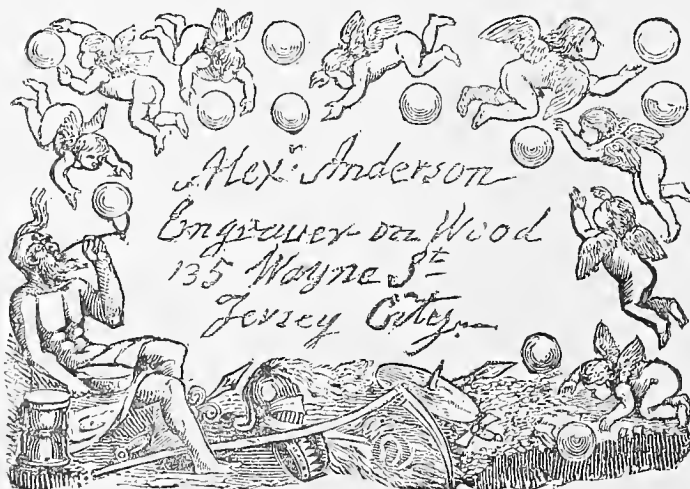 Alexr. Anderson
Engraver on Wood
135 Wayne St
Jersey City